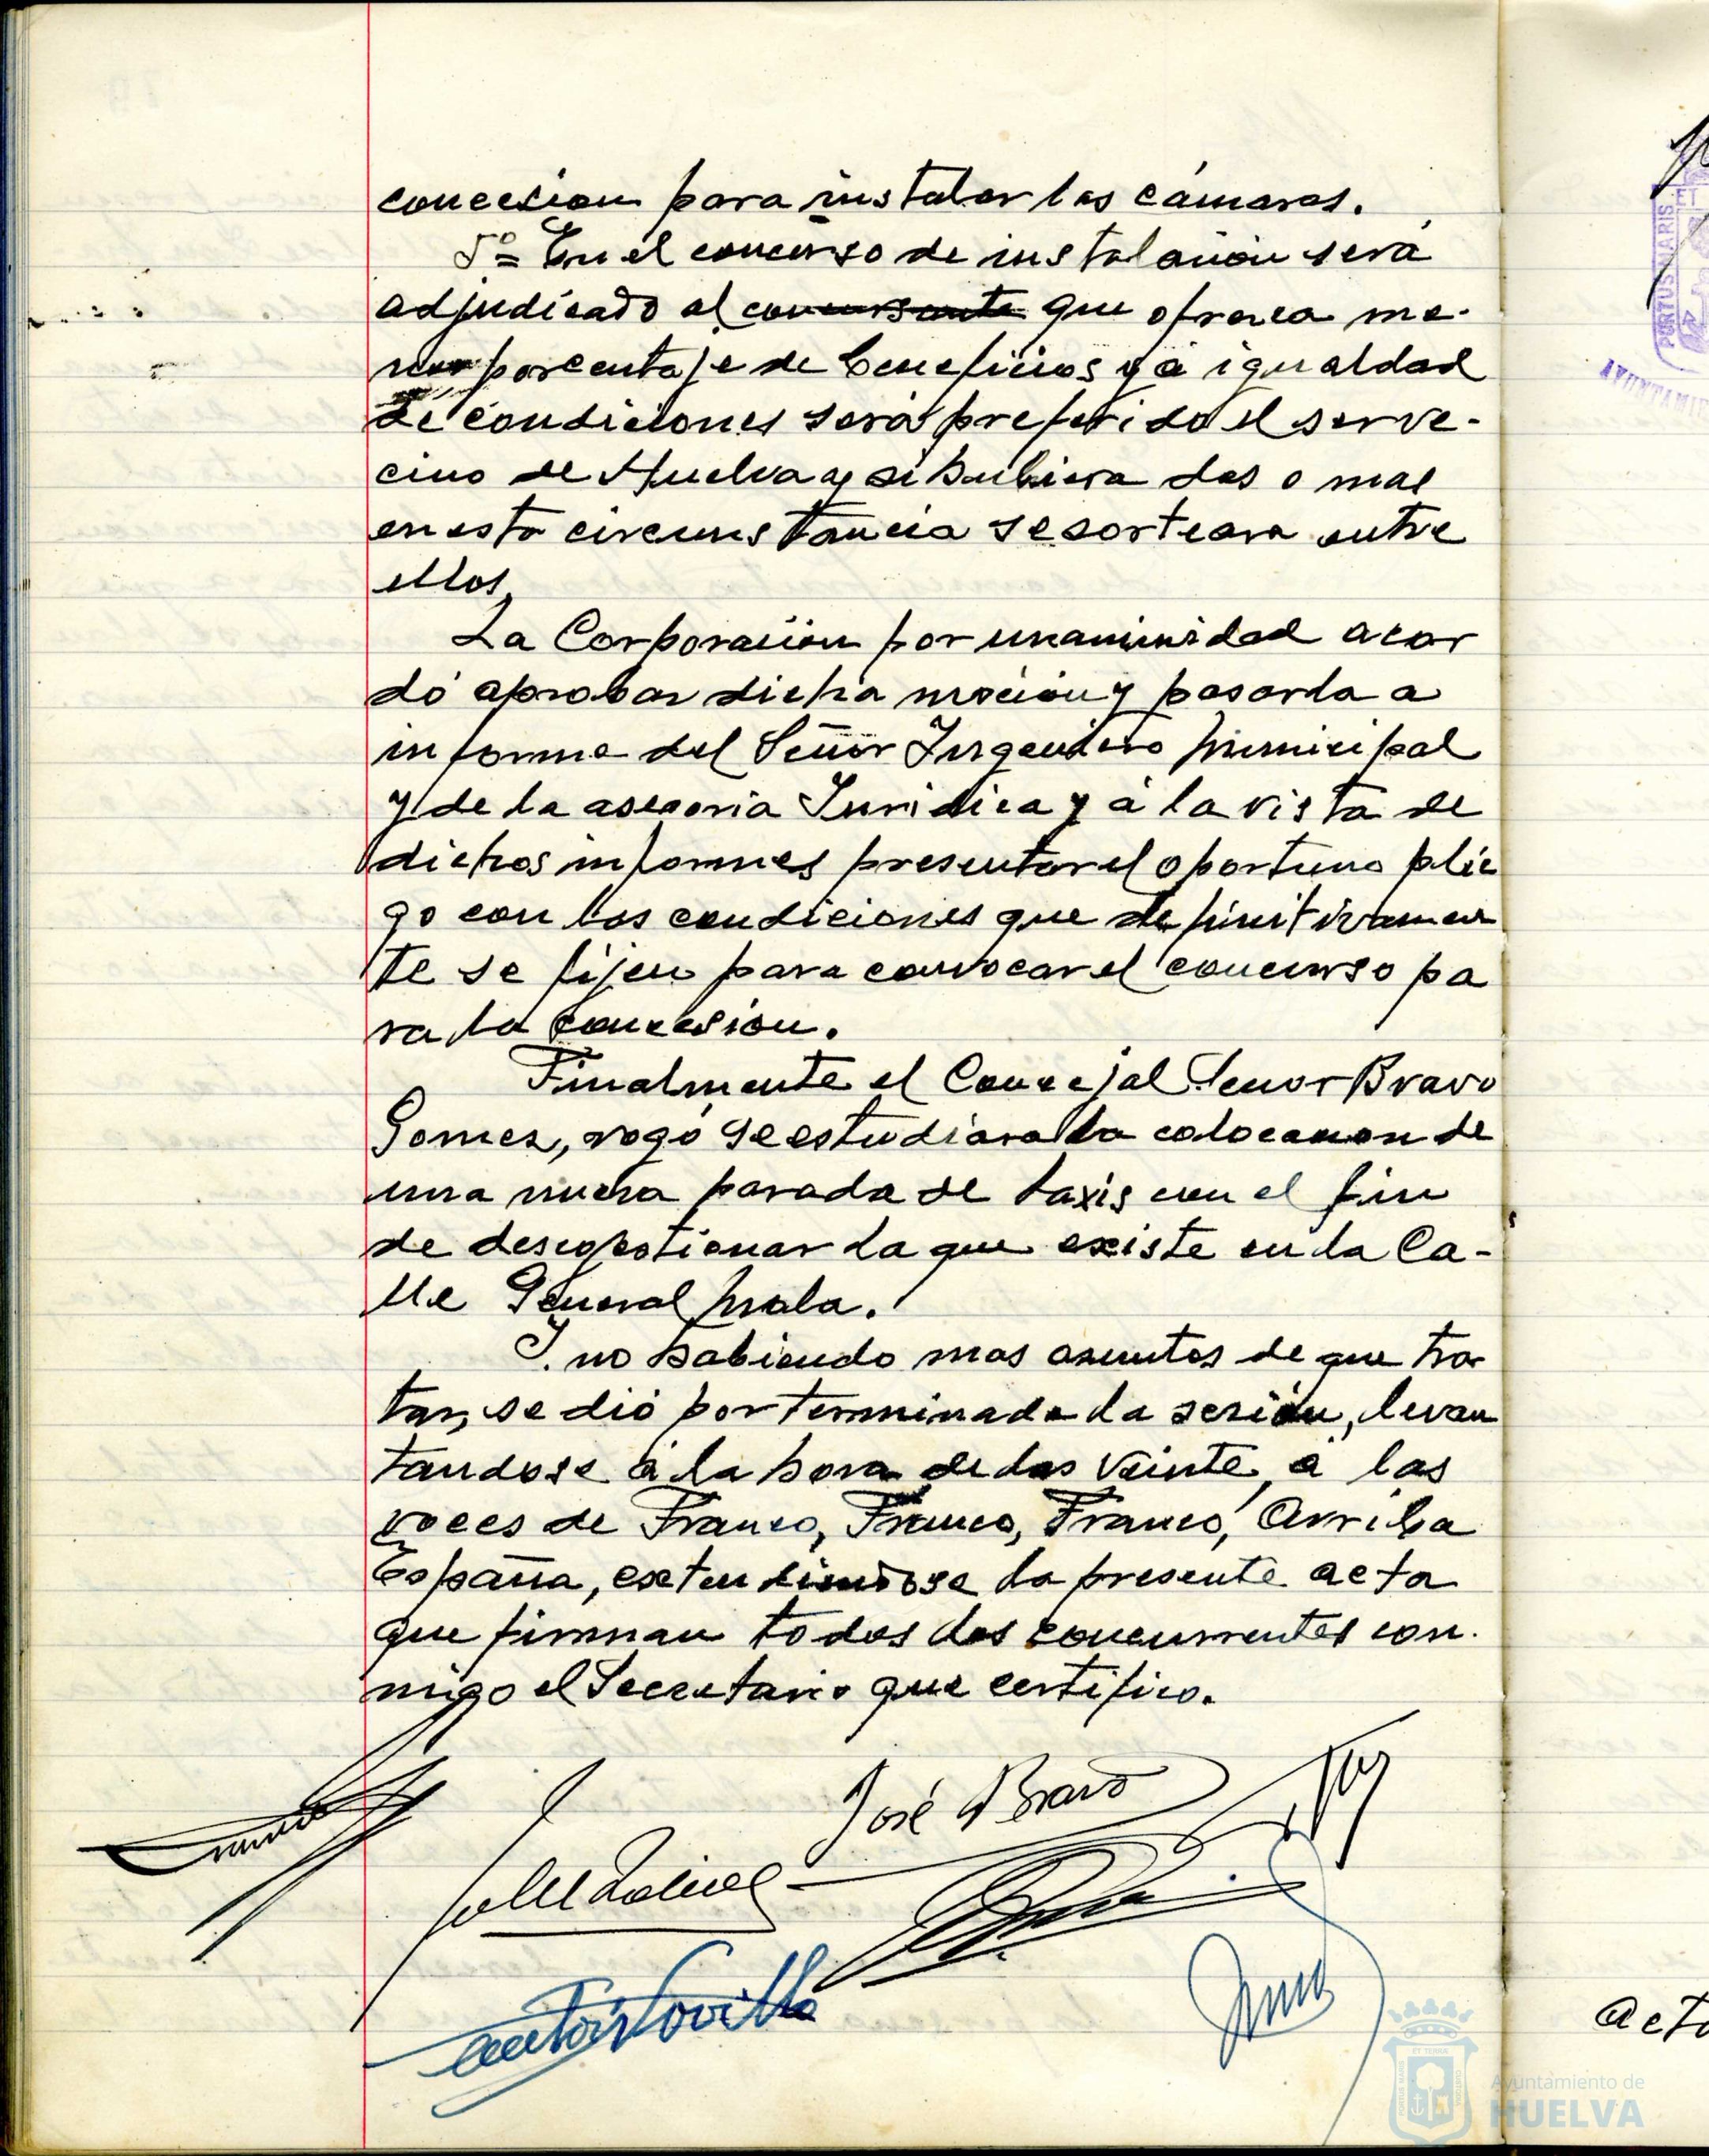 concesion para instalar las cámaras.
5º= En el concurso de instalación será
adjudicado al concursante que ofrezca me-
nor porcentaje de beneficios y á igualdad
de condiciones será preferido el ser ve-
cino de Huelva y si hubiera dos o mas
en esta circunstancia se sorteara entre
ellos.
La Corporación por unanimidad acor
dó aprobar dicha moción y pasarla a
informe del Señor Ingeniero Municipal
y de la asesoria Juridica y á la vista de
dichos informes presentar el oportuno plie
go con las condiciones que definitivamen
te se fijen para convocar el concurso pa
ra la concesion.
Finalmente el Concejal Señor Bravo
Gomez, rogó se estudiara la colocacion de
una nueva parada de taxis con el fin
de descogestionar la que existe en la Ca-
lle General Mola.
Y no habiendo mas asuntos de que tra
tar, se dió por terminada la sesión, levan
tandose á la hora de las veinte, á las
voces de Franco, Franco, Franco, Arriba
España, extendiendose la presente acta
que firman todos los concurrentes con-
migo el Secretario que certifico.
José Bravo
PORTUS MARIS ET
AYUNTAMIE
Acta
Ayuntamiento de
HUELVA